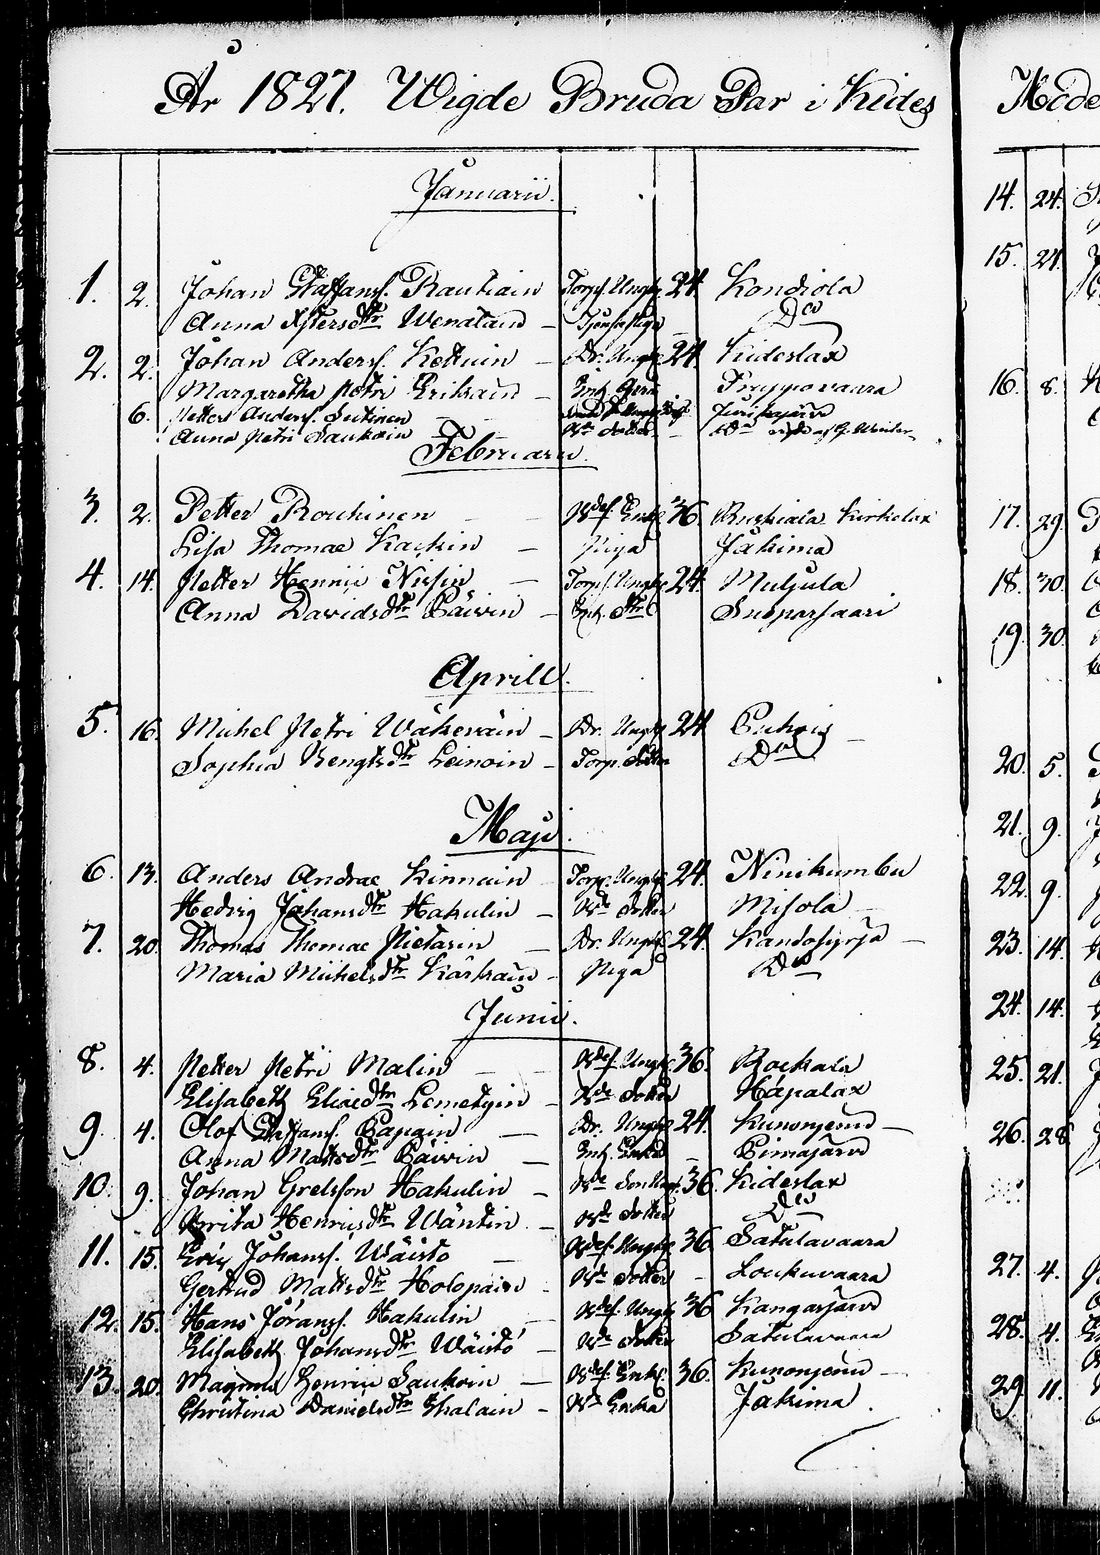 År 1827. Wigde Bruda Par i Kides
Januarii.
1. 2. Johan Staffansf. Rautiain Torpf. Ungk. 24. Kondiola
Anna Wenalain - Do
2. 2. Johan Andersf. Kettuin - Dr. Ungk. 24. Kideslax
Margaretha Petri Erikain - Enk. Puppovaara
6. Petter Andersf. Sutinen
Anna Petri Saukoin
Februarii.
3. 2. Petter Rouhinen - - 36 Ruskiala Kirkolax
Lisa Thomae Kackin - Piga Jakima
4. 14. Petter Henrii Nisin - Torpf. Ungk. 24. Muljula
Anna Davidsdtr Päivin - Enk. Dtr Suoparsaari
Aprill.
5. 16. Michel Petri Wäkeväin - Dr. Ungk. 24 Puhois
Sophia Bengtsdtr Leinoin - Torp. Dotter Do
Maji.
6. 13. Anders Andrae Kinnuin - Torp. Ungk. 24. Niinikumbu
Hedvig Johansdtr Hakulin - Bde Dotter Misola
7. 20. Thomas Thomae Pietarin - Dr. Ungk. 24. Kandosyrjä
Maria Michelsdtr Kärkäin - Piga Do
Junii.
8. 4. Petter Petri Malin - - Bdef. Ungk. 36. Rockala
Elisabeth Eliaedtr Lemetyin - Bde Dotter Hapalax
9. 4. Olof Staffansf. Papuin - Dr. Ungk. 24. Kunonjemi
Anna Mattsdtr Päivin - Enk. Enka - Pimäjärvi
10. 9. Johan Grelsson Hakulin - Bde Son 36. Kideslax
Brita Henriisdtr Wäntin - Bde Dotter Do
11. 15. Eric Johansf. Wäistö - Bdef. Ungk. 36 Satulavaara
Gertrud Mattsdtr Holopain - Bde Dotter - Loukuvaara
12. 15. Hans Jöransf. Hakulin - Bdef. Ungk. 36 Kangasjärvi
Elisabeth Johansdtr Wäistö - Bde Dotter Satulavaara
13. 20. Magnus Henrii Saukoin - Bdef. Enkl. 36. Kunonjemi
Christina Danielsdtr Ihalain - Bde Enka Jakima
14. 24.
15. 24.
16. 8.
17. 29.
18. 30.
19. 30.
20. 5.
21. 9.
22. 9.
23. 14.
24. 14.
25. 21.
26. 28.
27. 4.
28. 4.
29. 11.